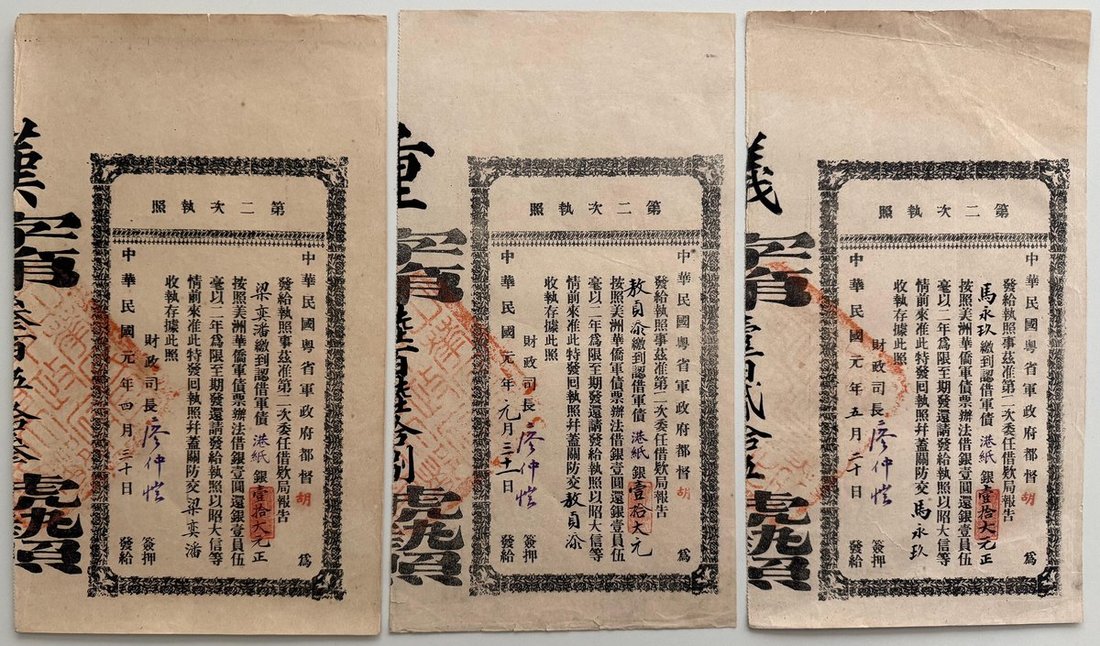 第二次執照
中華民國粵省軍政府都督胡 為
發給執照事茲准第二次委任借欵局報告
梁奕潘繳到認借軍債港紙銀壹拾大元正
按照美洲華僑軍債票辦法借銀壹圓還銀壹員伍
毫以二年為限至期發還請發給執照以昭大信等
情前來准此特發回執照幷蓋關防交梁奕潘
收執存據此照
財政司長廖仲愷 簽押
中華民國元年四月三十日 發給
漢字第叁百伍拾叁號
第二次執照
中華民國粵省軍政府都督胡 為
發給執照事茲准第二次委任借欵局報告
敖員淙繳到認借軍債港紙銀壹拾大元
按照美洲華僑軍債票辦法借銀壹圓還銀壹員伍
毫以二年為限至期發還請發給執照以昭大信等
情前來准此特發回執照幷蓋關防交敖員淙
收執存據此照
財政司長廖仲愷 簽押
中華民國元年元月三十一日 發給
字第陸百陸拾捌號
第二次執照
中華民國粵省軍政府都督胡 為
發給執照事茲准第二次委任借欵局報告
馬永玖繳到認借軍債港紙銀壹拾大元正
按照美洲華僑軍債票辦法借銀壹圓還銀壹員伍
毫以二年為限至期發還請發給執照以昭大信等
情前來准此特發回執照幷蓋關防交馬永玖
收執存據此照
財政司長廖仲愷 簽押
中華民國元年五月二十日 發給
字第壹百貳拾伍號